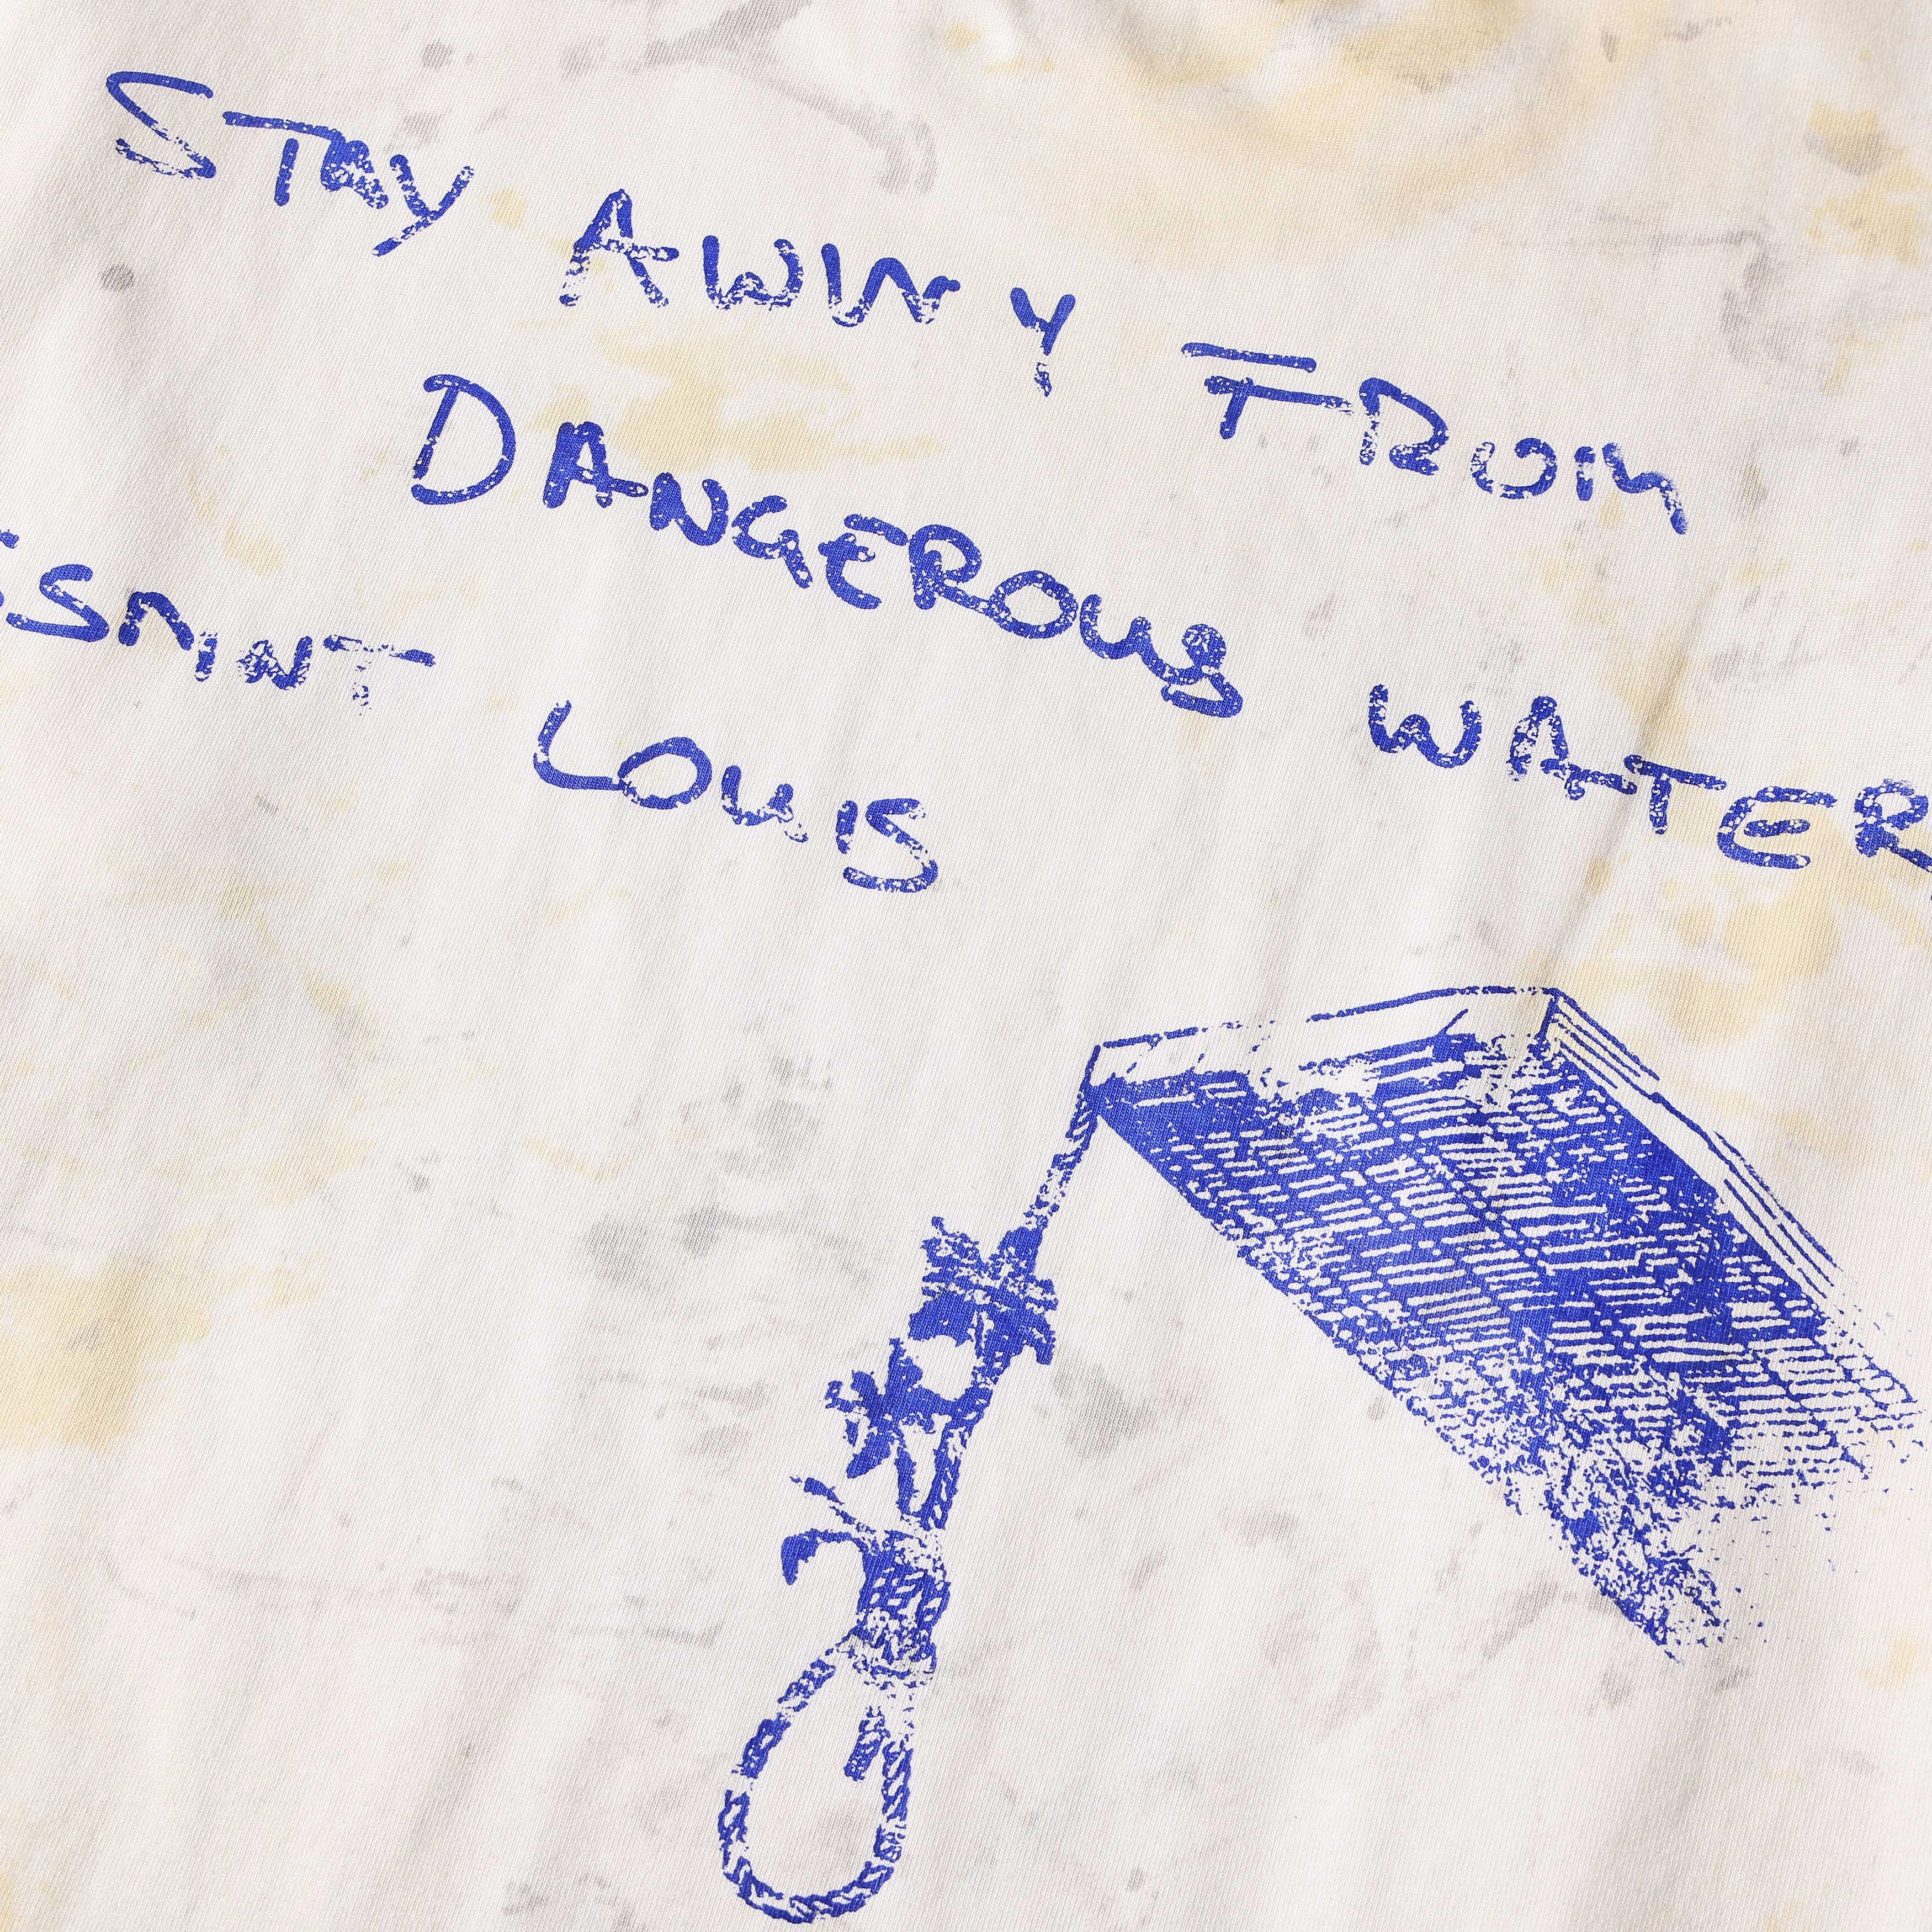 STAY AWAY FROM
DANGEROUS WATER
SAINT LOUIS